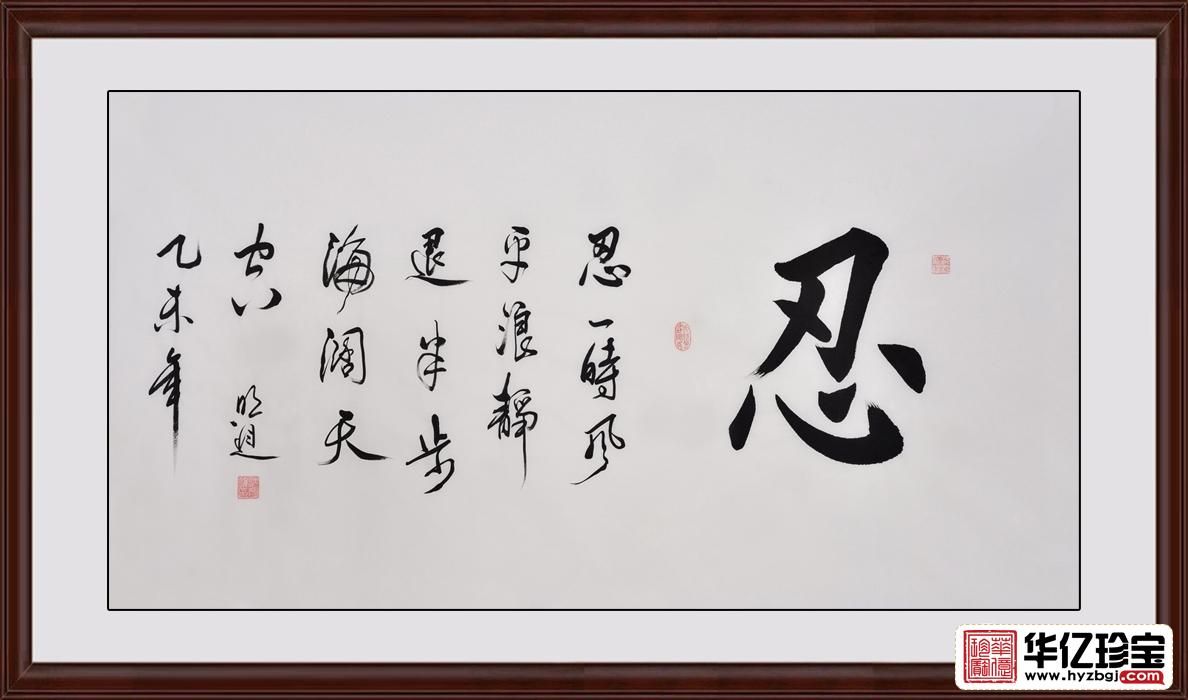 忍
忍一時風
平浪靜
退半步
海濶天
空
乙未年
华亿珍宝
www.hyzbgj.com